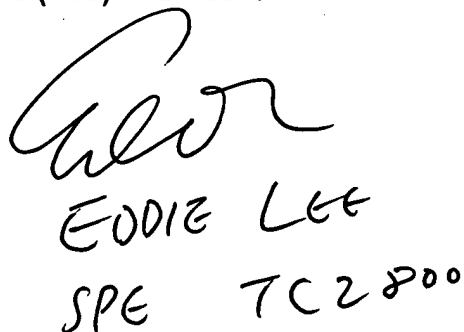 EDDIE LEE
SPE TC2800